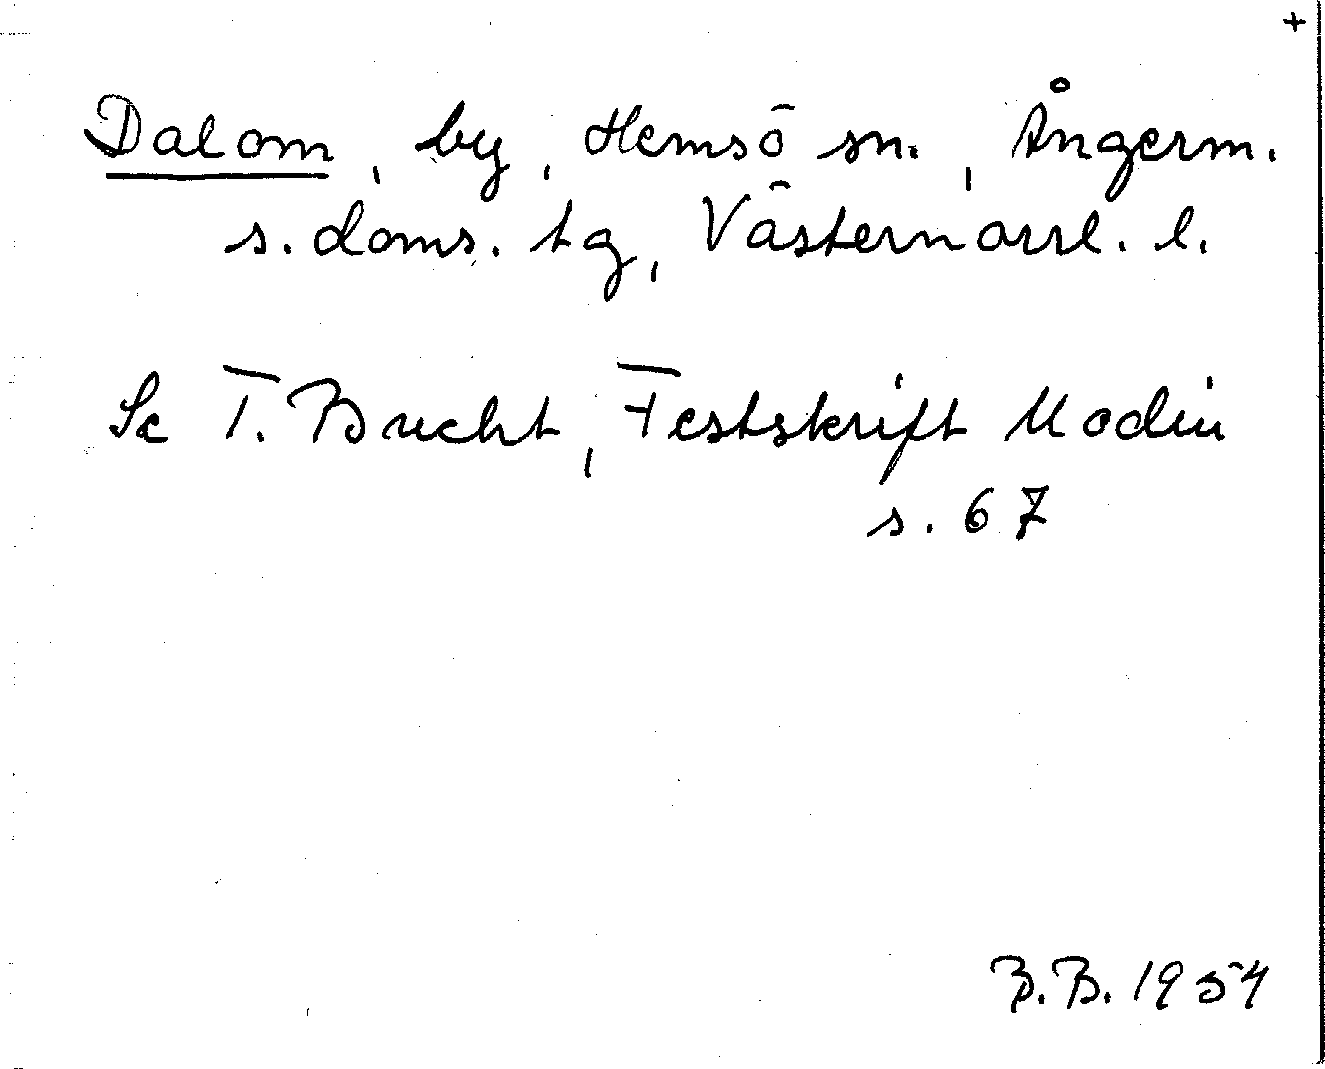 +
Dalom, by, Hemsö sn., Ångerm.
s. doms. tg, Västernorrl. l.
Se T. Bucht, Festskrift Modin
s. 67
B.B. 1954